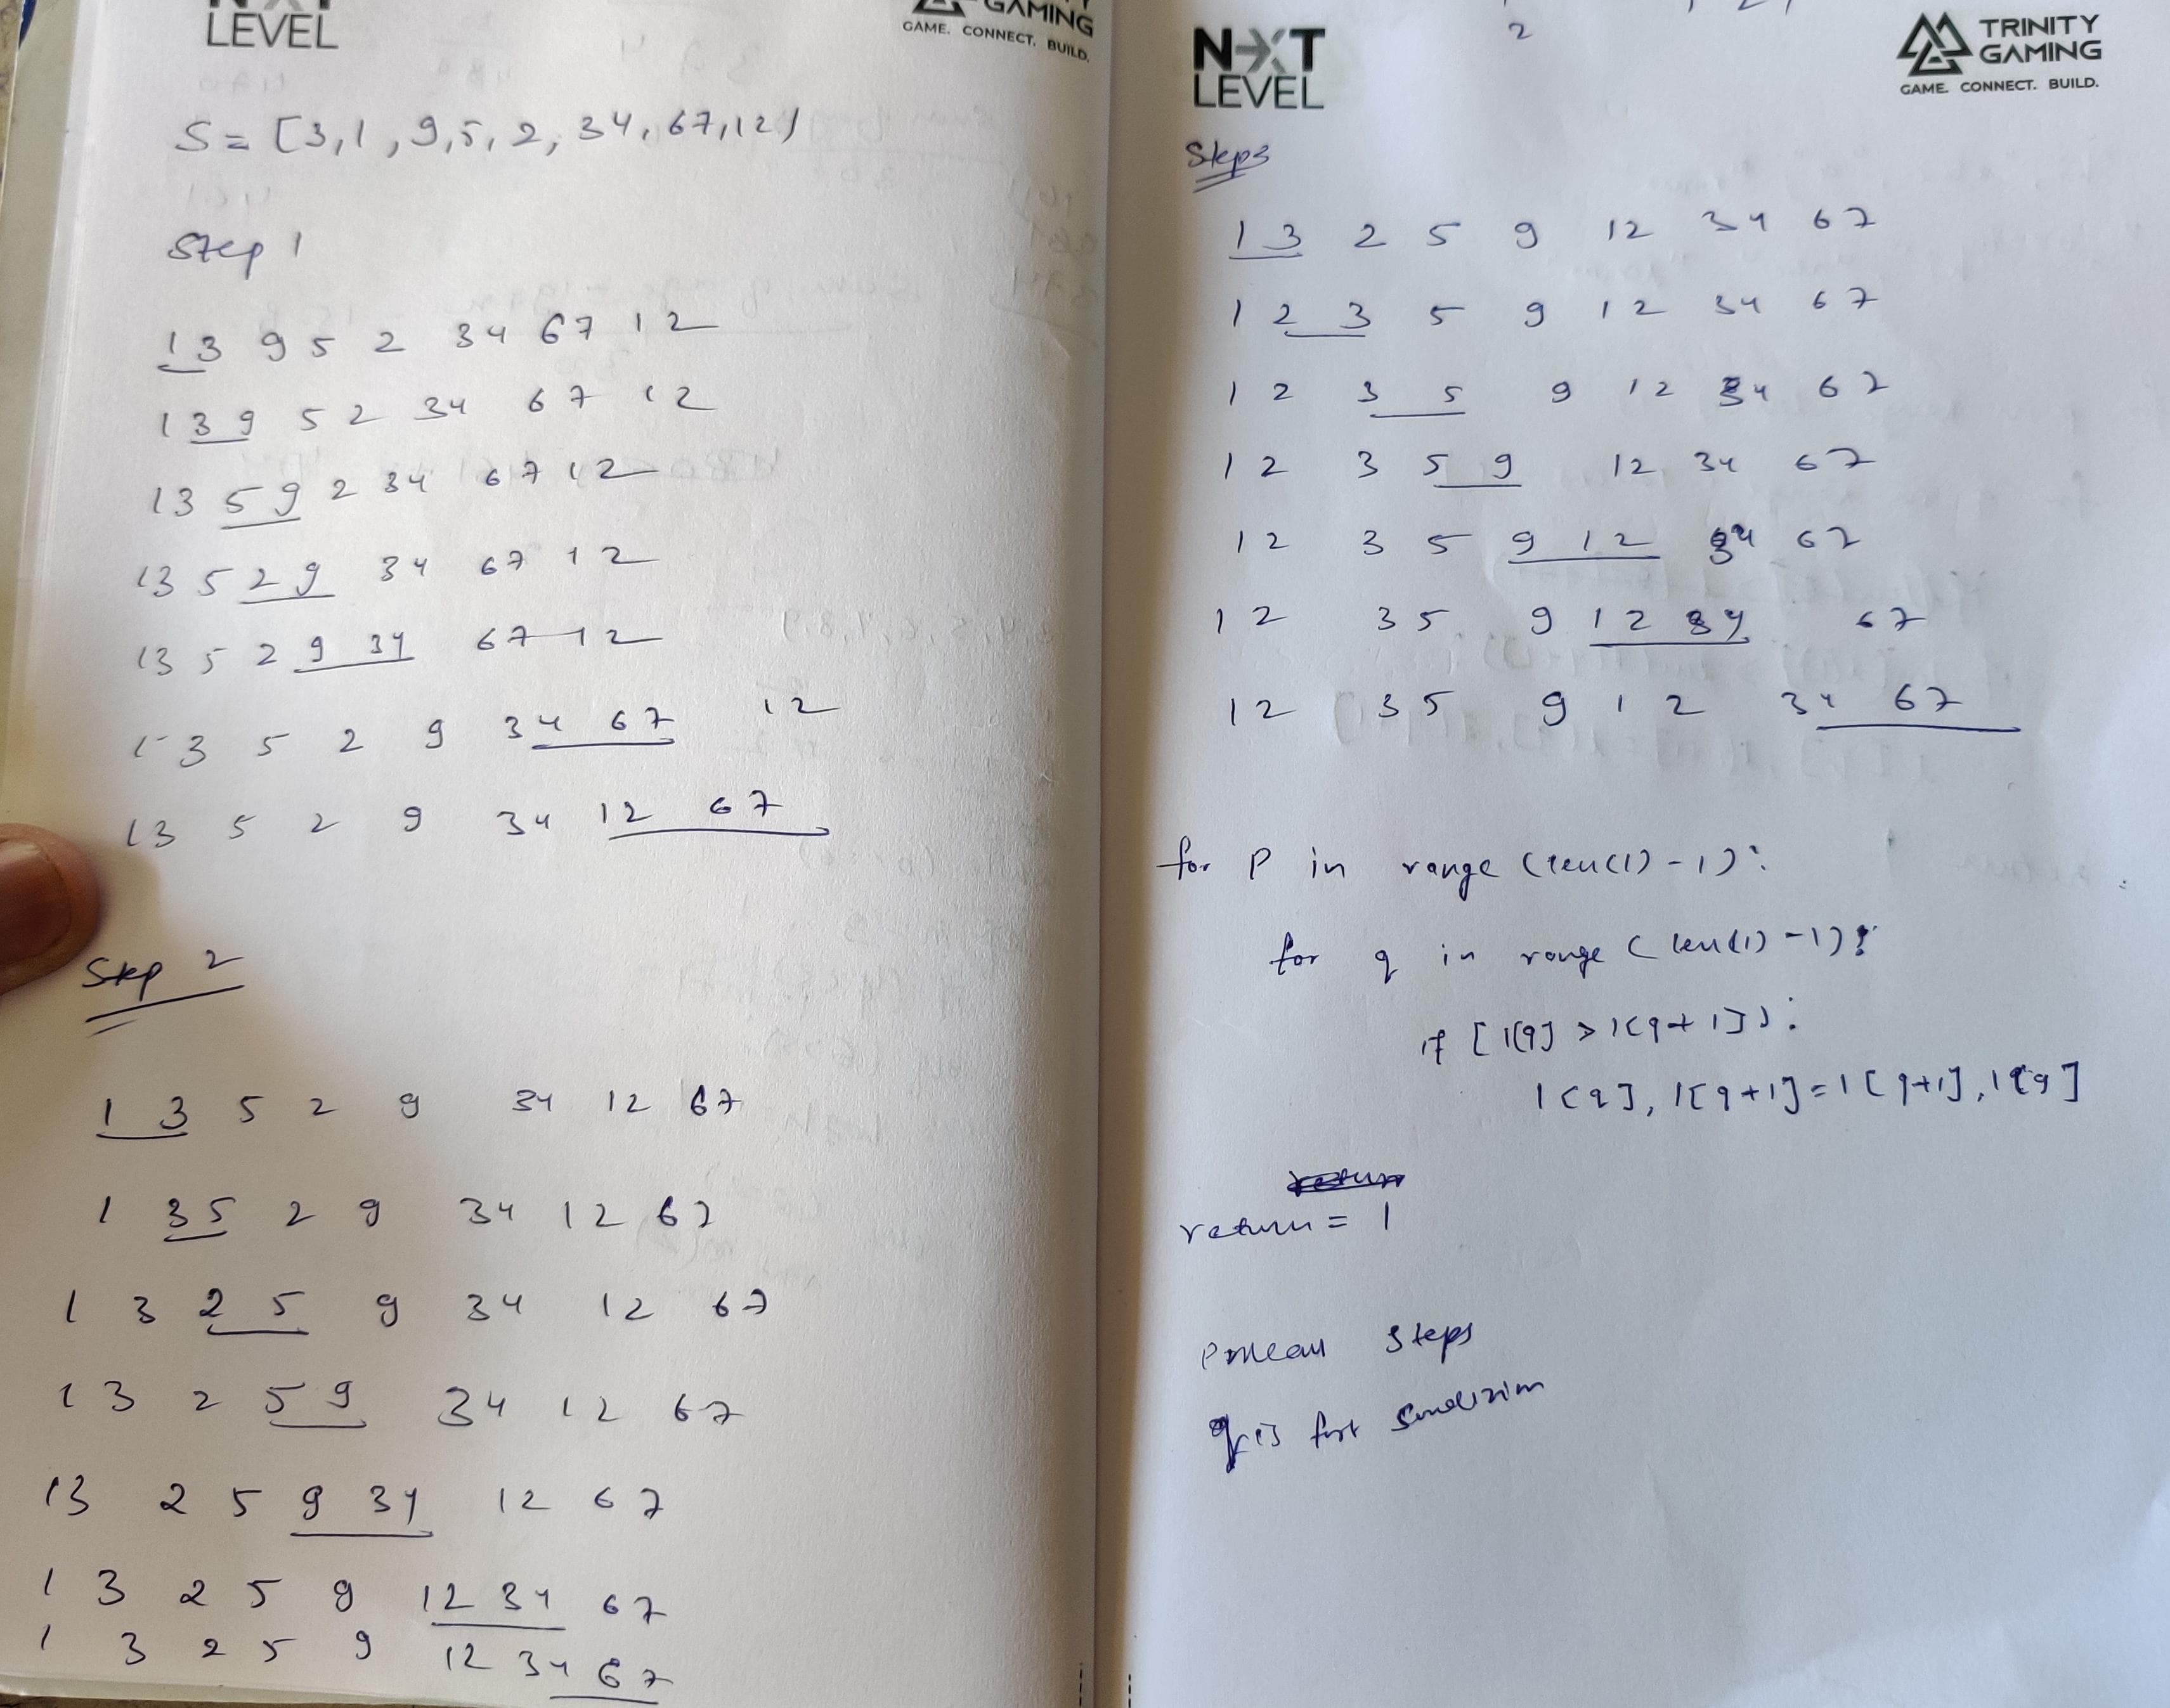 NEXT
LEVEL
GAMING
GAME. CONNECT. BUILD.
S = [3,1,9,5,2,34,67,12)
Step 1
1 3 9 5 2 34 67 12
1 3 9 5 2 34 67 12
1 3 5 9 2 34 67 12
1 3 5 2 9 34 67 12
1 3 5 2 9 34 67 12
1 3 5 2 9 34 67 12
1 3 5 2 9 34 12 67
Step 2
1 3 5 2 9 34 12 67
1 3 5 2 9 34 12 67
1 3 2 5 9 34 12 67
1 3 2 5 9 34 12 67
1 3 2 5 9 34 12 67
1 3 2 5 9 12 34 67
1 3 2 5 9 12 34 67
2
NEXT
LEVEL
TRINITY
GAMING
GAME. CONNECT. BUILD.
Step3
1 3 2 5 9 12 34 67
1 2 3 5 9 12 34 67
1 2 3 5 9 12 34 67
1 2 3 5 9 12 34 67
1 2 3 5 9 12 34 67
1 2 3 5 9 12 34 67
1 2 3 5 9 12 34 67
for p in range (len(l)-1):
for q in range (len(l)-1):
if [l[q] > l[q+1]):
l[q], l[q+1] = l[q+1], l[q]
return
return = l
P mean steps
q is for